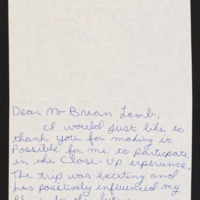 Dear Mr Brian Lamb,
I would just like to
thank you for making it
Possible for me to participate
in the Close-Up experience.
The trip was exciting and
has positively influenced my